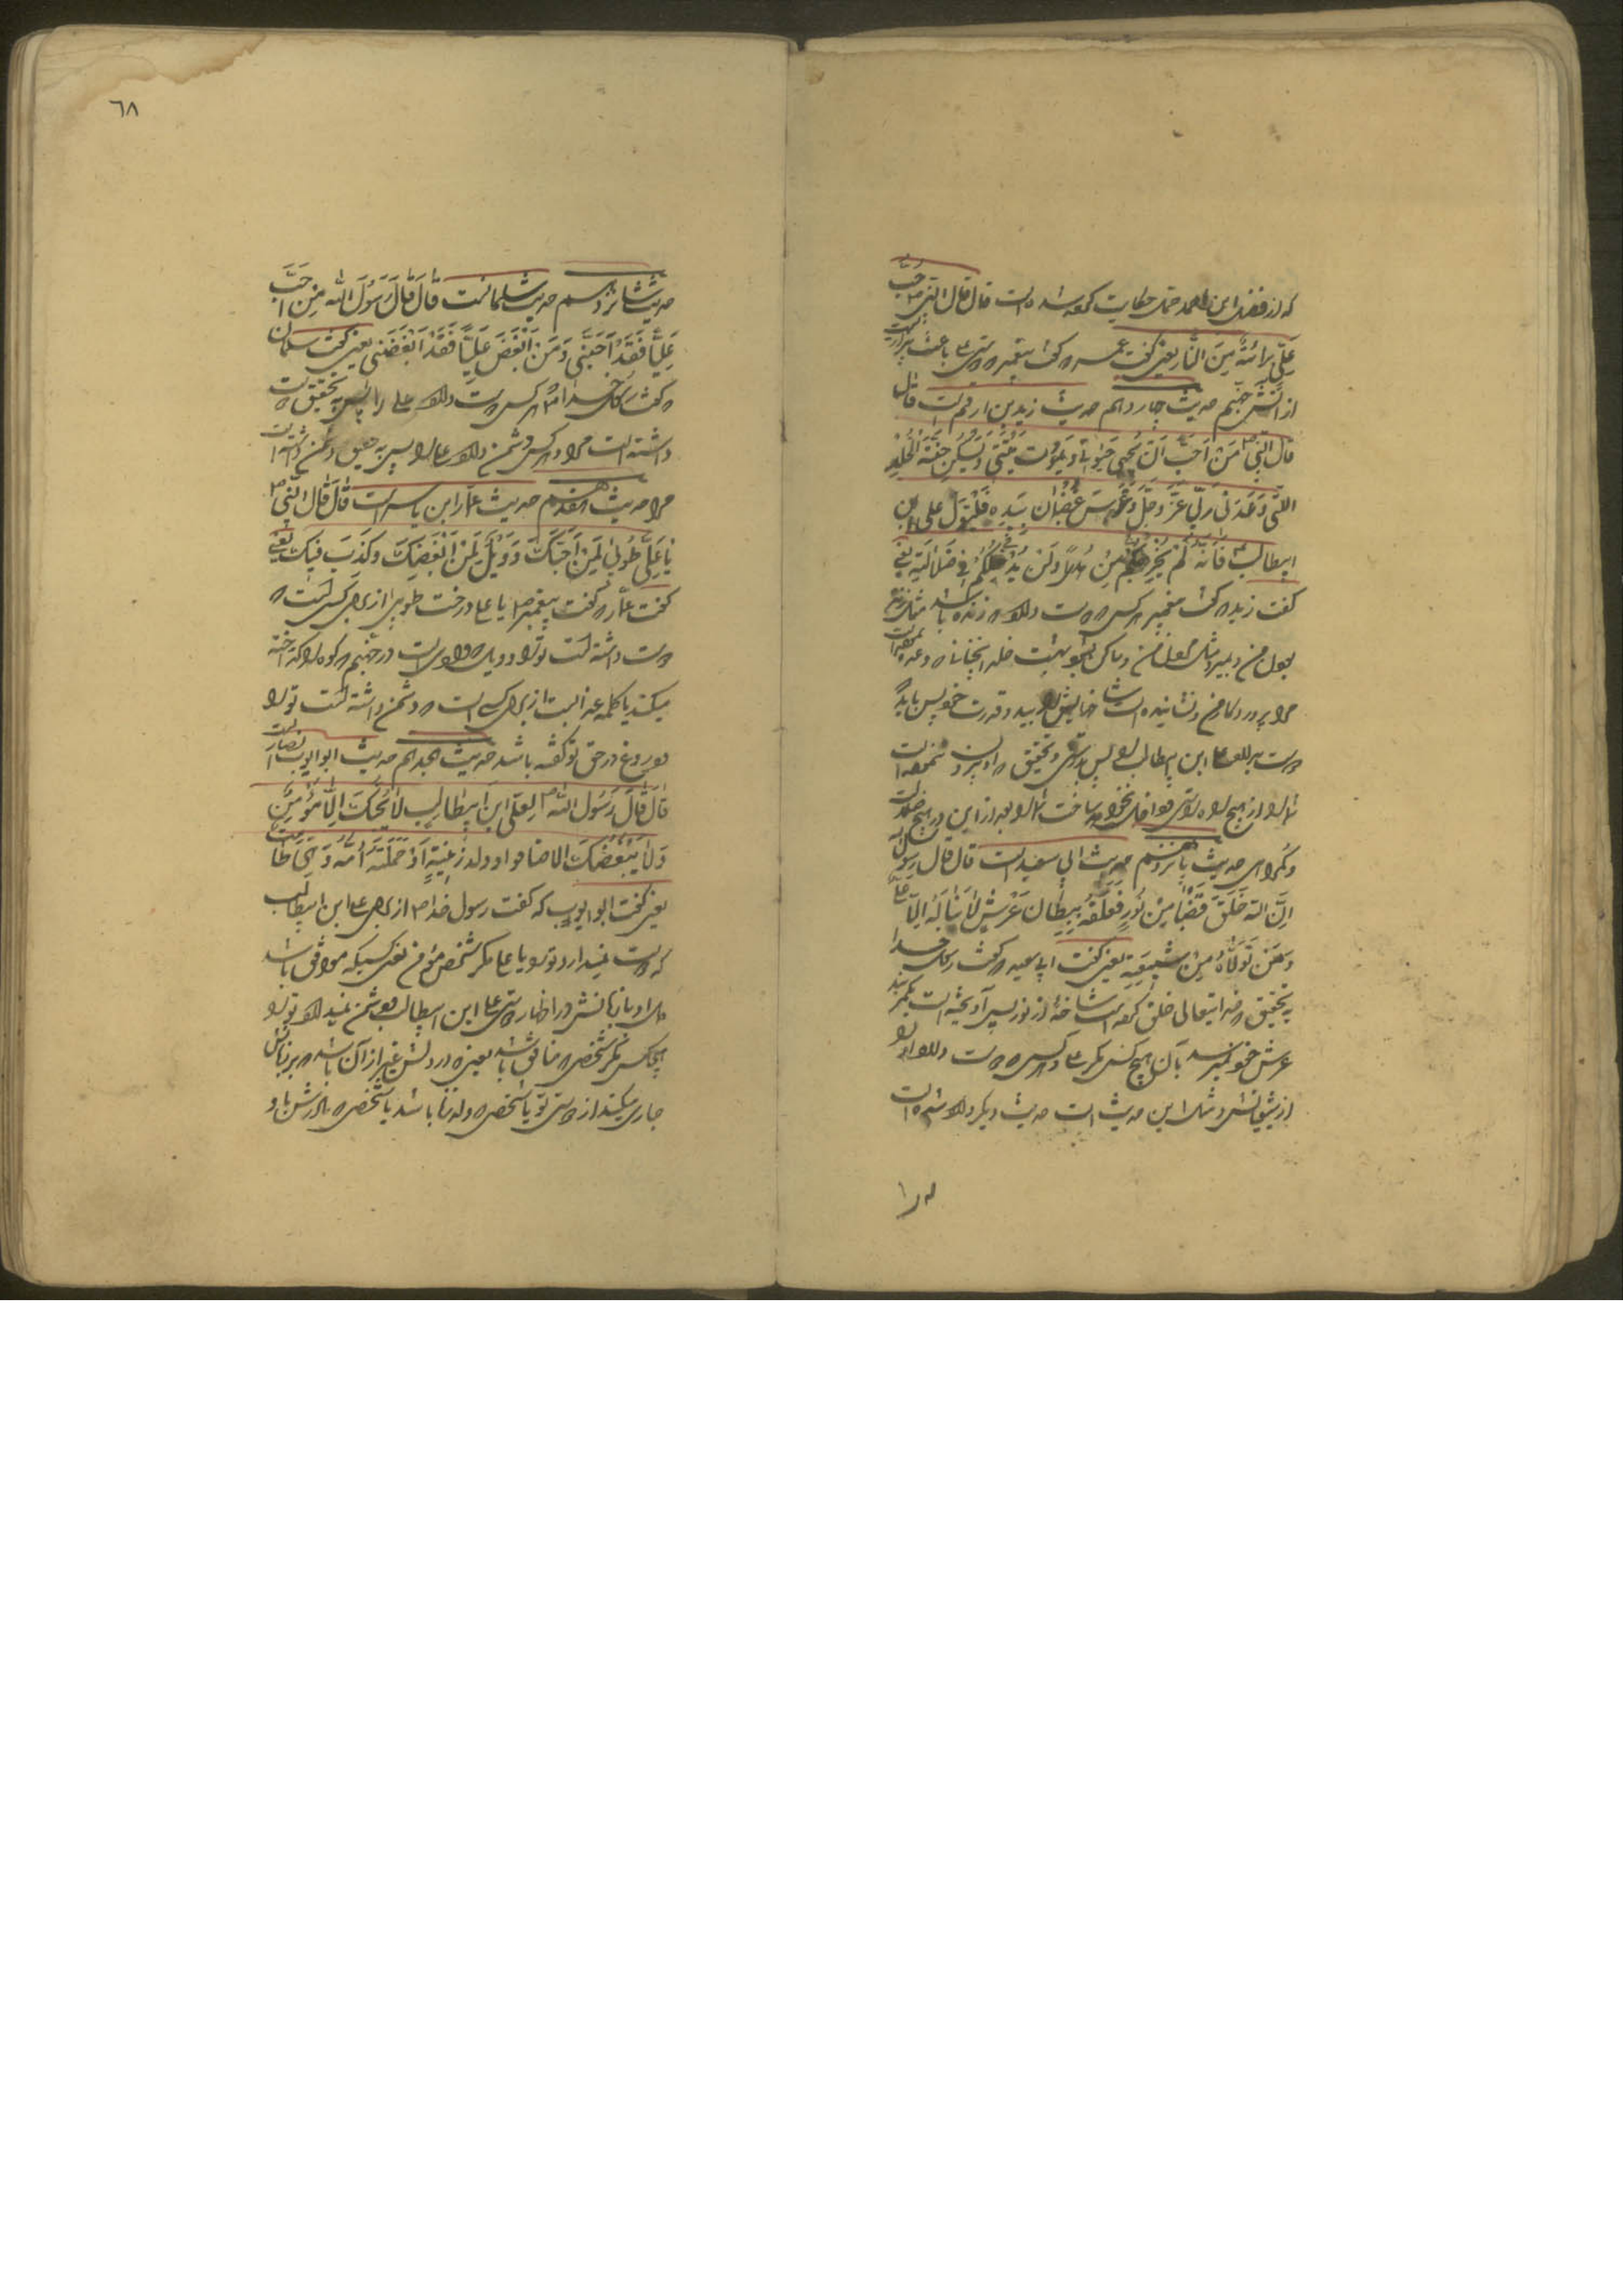 که از فضل ابن احمد حکایت کرده شده است قال قال النبی ص حب
علی برائة من النار یعنی گفت عمر که گفت پیغمبر دوستی علی باعث بیزاریست
از آتش جهنم حدیث چهاردهم حدیث زید بن ارقم است قال
قال النبی ص من احب ان یحیی حیوتی و یموت میتتی و یسکن جنة الخلد
التی وعدنی ربی عز و جل و غرس غضبان بیده فلیتول علی ابن
ابیطالب فانه لن یخرجکم من هدی و لن یدخلکم فی ضلالة یعنی
گفت زید که گفت پیغمبر هر کس که دوست دارد که زنده باشد
مرا پروردگار من و نشانیده است شاخهایش را بید و قدرت خود پس باید که
دوست بدارد علی ابن ابیطالب را پس بدرستی و تحقیق که او بیرون ننموده است
شما را از هیچ راه راستی و داخل نخواهد ساخت شما را بعد از این در هیچ ضلالت
و گمراهی حدیث پانزدهم حدیث ابی سعید است قال قال رسول الله
ان الله خلق قضبا من نور فعلقه ببطان عرش لا یناله الا علی
و من تولاه من شیعیته یعنی گفت ابی سعید که گفت رسول خدا
به تحقیق که خدایتعالی خلق کرده است شاخهٔ از نور پس آویخته است بکمربند
عرش خود نمیرسد بآن هیچ کس مگر علی و هر کس که دوست دارد او را
از شیعیانش و مثل این حدیث است حدیث دیگر و الا شده است
٦٨
حدیث شانزدهم حدیث سلمانست قال قال رسول الله من احب
علیا فقد احبنی و من ابغض علیا فقد ابغضنی یعنی گفت سلمان
که گفت رسول خدا ص هر کس دوست دارد علی را پس به تحقیق دوست
داشته است مرا و هر کس دشمن دارد علی را پس به تحقیق دشمن داشته است
مرا حدیث هفدهم حدیث عمار ابن یاسر است قال قال النبی ص
یا علی طوبی لمن احبک و ویل لمن ابغضک و کذب فیک یعنی
گفت عمار که گفت پیغمبر ص یا علی درخت طوبی از برای کسی است که
دوست داشته است تو را و ویل که وادی است در جهنم که کوه را گداخته
میکند یا کلمه عذابست از برای کسی است که دشمن داشته است تو را
و دروغ در حق تو گفته باشد حدیث هجدهم حدیث ابو ایوب انصاریست
قال قال رسول الله ص لعلی ابن ابیطالب لا یحبک الا مؤمن
و لا یبغضک الا منافق او ولد زنیة او حملته امه و هی طامث
یعنی گفت ابو ایوب که گفت رسول خدا ص از برای علی ابن ابیطالب
که دوست نمیدارد تو را یا علی مگر شخص مؤمن یعنی کسیکه موافق باشد
دل او با زبانش در اظهار دوستی علی ابن ابیطالب و دشمن نمیدارد تو را
هیچکس مگر شخصی که منافق باشد یعنی در دلش غیر از آن باشد که بر زبانش
جاری میکند از دوستی تو یا شخصی که ولد زنا باشد یا شخصی که مادرش باو